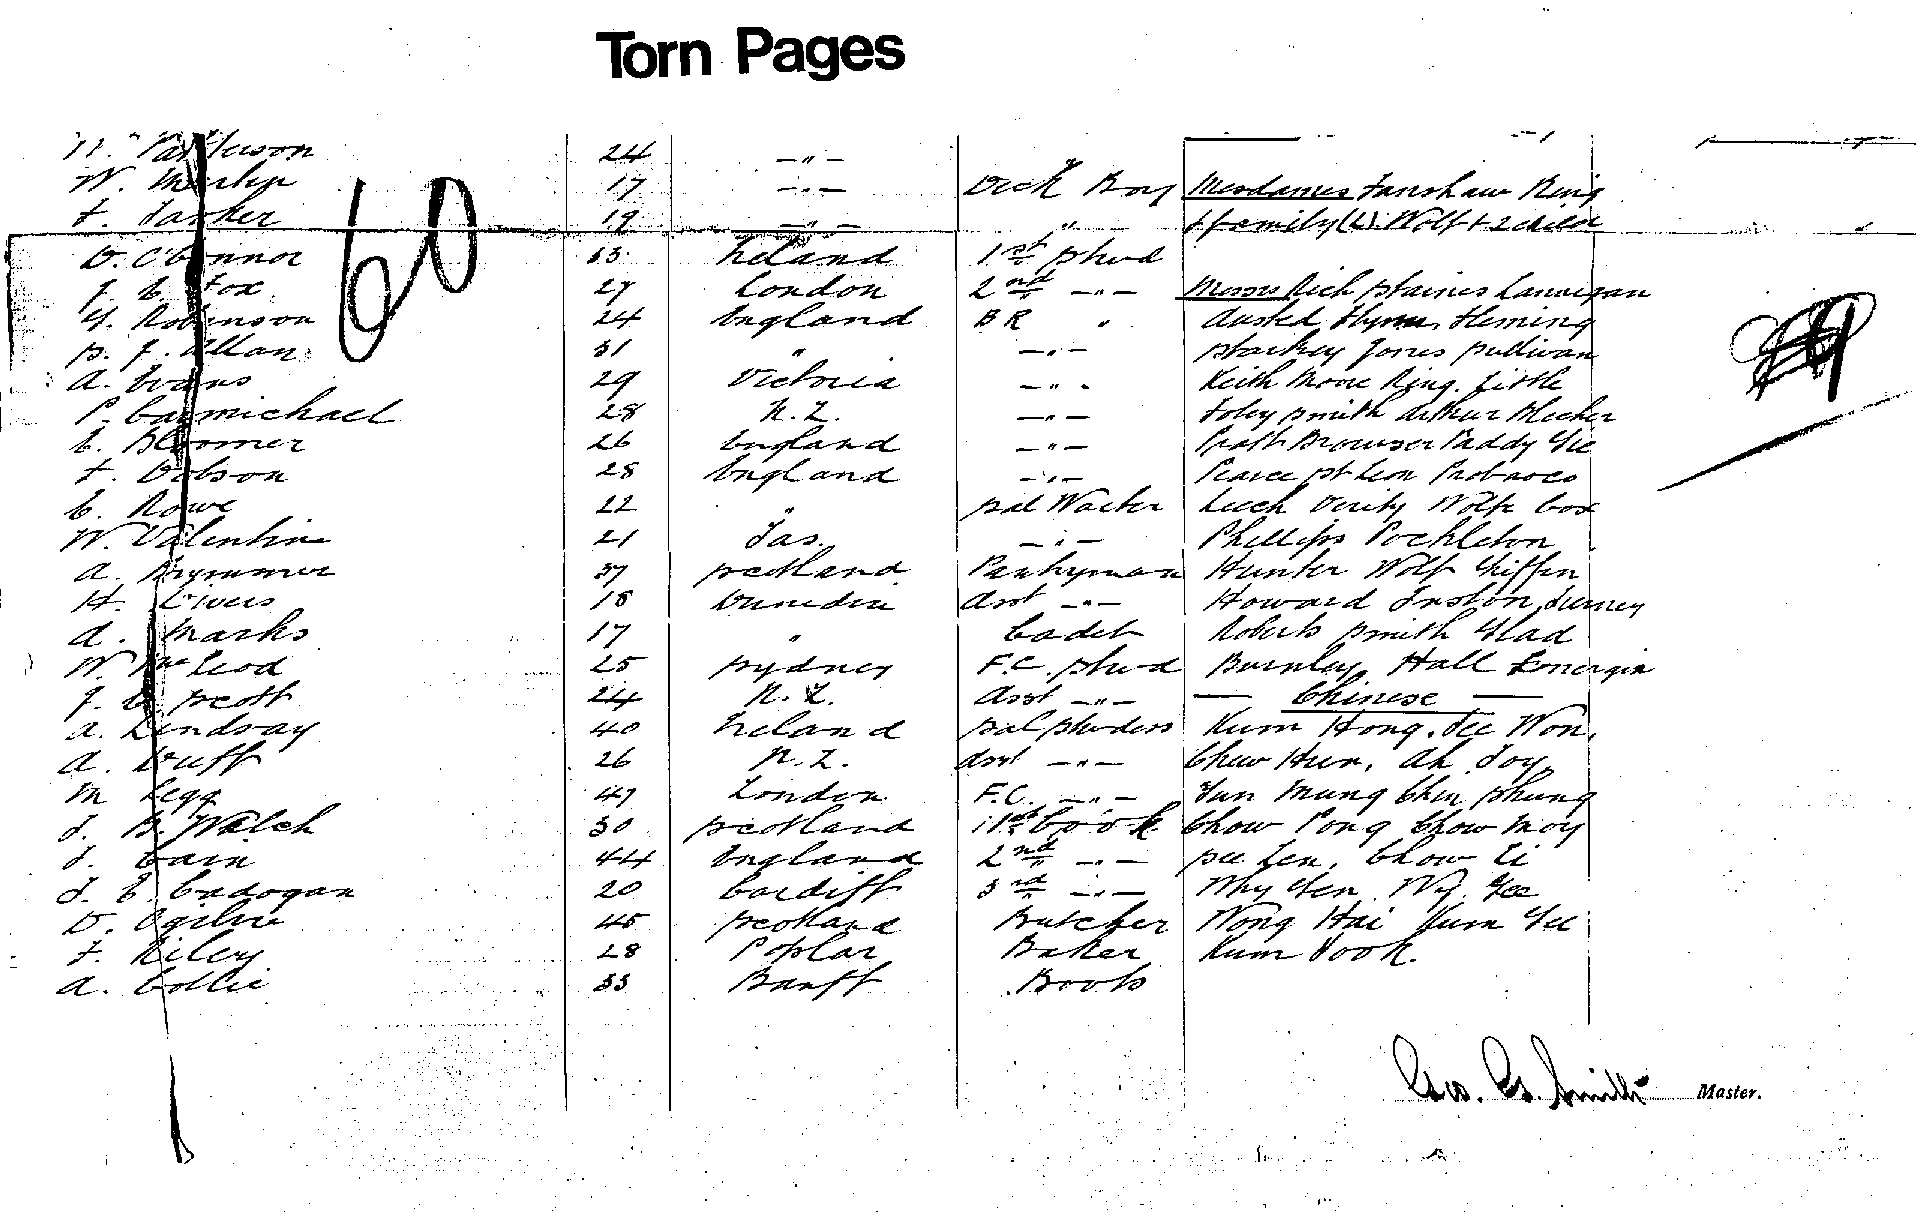 Torn Pages
Patterson 24 -"-
W. 17 -"- Deck Boy Mesdames Fanshaw King
F. 19 -"- " + family (4) Wolf + 2 child
D. O'Connor 33 Ireland 1st Stwd
J. E. Fox 27 London 2nd -"- Messrs Rich Staines Lannigan
Y. Robinson 24 England B R " Fleming
S. J. Allan 31 " -"- Starkey Jones Sullivan
A. Evans 29 Victoria -"- Keith Moore King. Little
P. Carmichael 28 N.Z. -"- Foley Smith Arthur
E. Bloomer 26 England -"- Pratt Browser Paddy Yee
F. Dobson 28 England -"- Pearce St Leon
E. Rowe 22 " Sal Waiter Leech Verity Wolfe Cox
W. Valentine 21 Tas. -"- Phillips Pockleton
A. 37 Scotland Pantryman Hunter Wolf
H. 18 Dunedin Asst -"- Howard Inston
A. Marks 17 " Cadet Roberts Smith Glad
W. McLeod 25 Sydney F.C. Stwd Burnley, Hall
J. Scott 24 N.Z. Asst -"- Chinese
A. Lindsay 40 Ireland Sal Stwdess Kum Hong. Yee Won.
A. Duff 26 N.Z. Asst -"- Chew Hun. Ah Toy.
M Legg 47 London F.C. -"- Yun Mung Chin Shung
J. B. Walch 30 Scotland 1st Cook Chow Pong Chow Moy
J. Cain 44 England 2nd -"- See Len. Chow Li
J. E. Cadogan 20 Cardiff 3rd -"- Why Yen. Wy. Yee
D. Ogilvie 45 Scotland Butcher Wong Hai Kum Yee
F. Riley 28 Poplar Baker Kum Took.
A. Collie 33 Banff Boots
60
Geo. G. Smith Master.